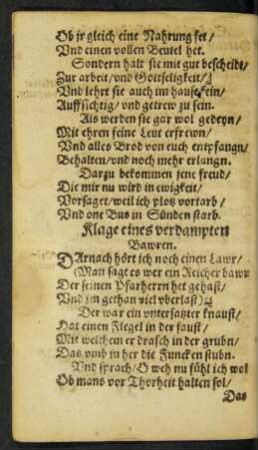 Ob jr gleich eine Nahrung fet /
Vnd einen vollen Beutel het.
Sondern halt sie mit gut bescheidt /
Zur arbeit / vnd Gottseligkeit /
Vnd lehrt sie auch im hause fein /
Auffsichtig / vnd getrew zu sein.
Als werden sie gar wol gedeyn /
Mit ehren feine Leut erfrewn /
Vnd alles Brod von euch entpfangn /
Behalten / vnd noch mehr erlangn.
Darzu bekommen jene freud /
Die mir nu wird in ewigkeit /
Vorsaget / weil ich plotz vortarb /
Vnd one Bus in Sünden starb.
Klage eines verdampten
Bawren.
DArnach hört ich noch einen Lawr /
(Man sagt es wer ein Reicher bawr
Der seinen Pfarherrn het gehast /
Vnd jm gethan viel vberlast)
Der war ein vntersatzter knaust /
Hat einen Flegel in der faust /
Mit welchem er drasch in der grubn /
Das vmb in her die Funcken stubn.
Vnd sprach / O weh nu fühl ich wol
Ob mans vor Thorheit halten sol /
Das